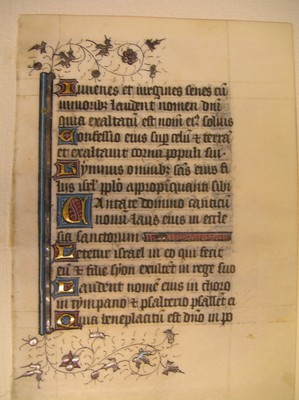 Iuuenes et uirgines senes cū
iunioribꝫ laudent nomen dnī
quia exaltatū est nom̄ eiꝰ soliꝰ
Confessio eius sup̄ celū ⁊ terrā
et exaltauit cornu populi sui
Hymnus omnibꝫ scīs eius fi
liis isrl̄ pplō appropiquanti sibi
Cantate domino canticū
nouū laus eius in eccle
sia sanctorum
Letetur israel in eo qui fecit
eū ⁊ filie syon exultēt in rege suo
Laudent nomē eius in choro
in tympano ⁊ psalterio psallēt ei
Quia beneplacitū est dn̄o in po